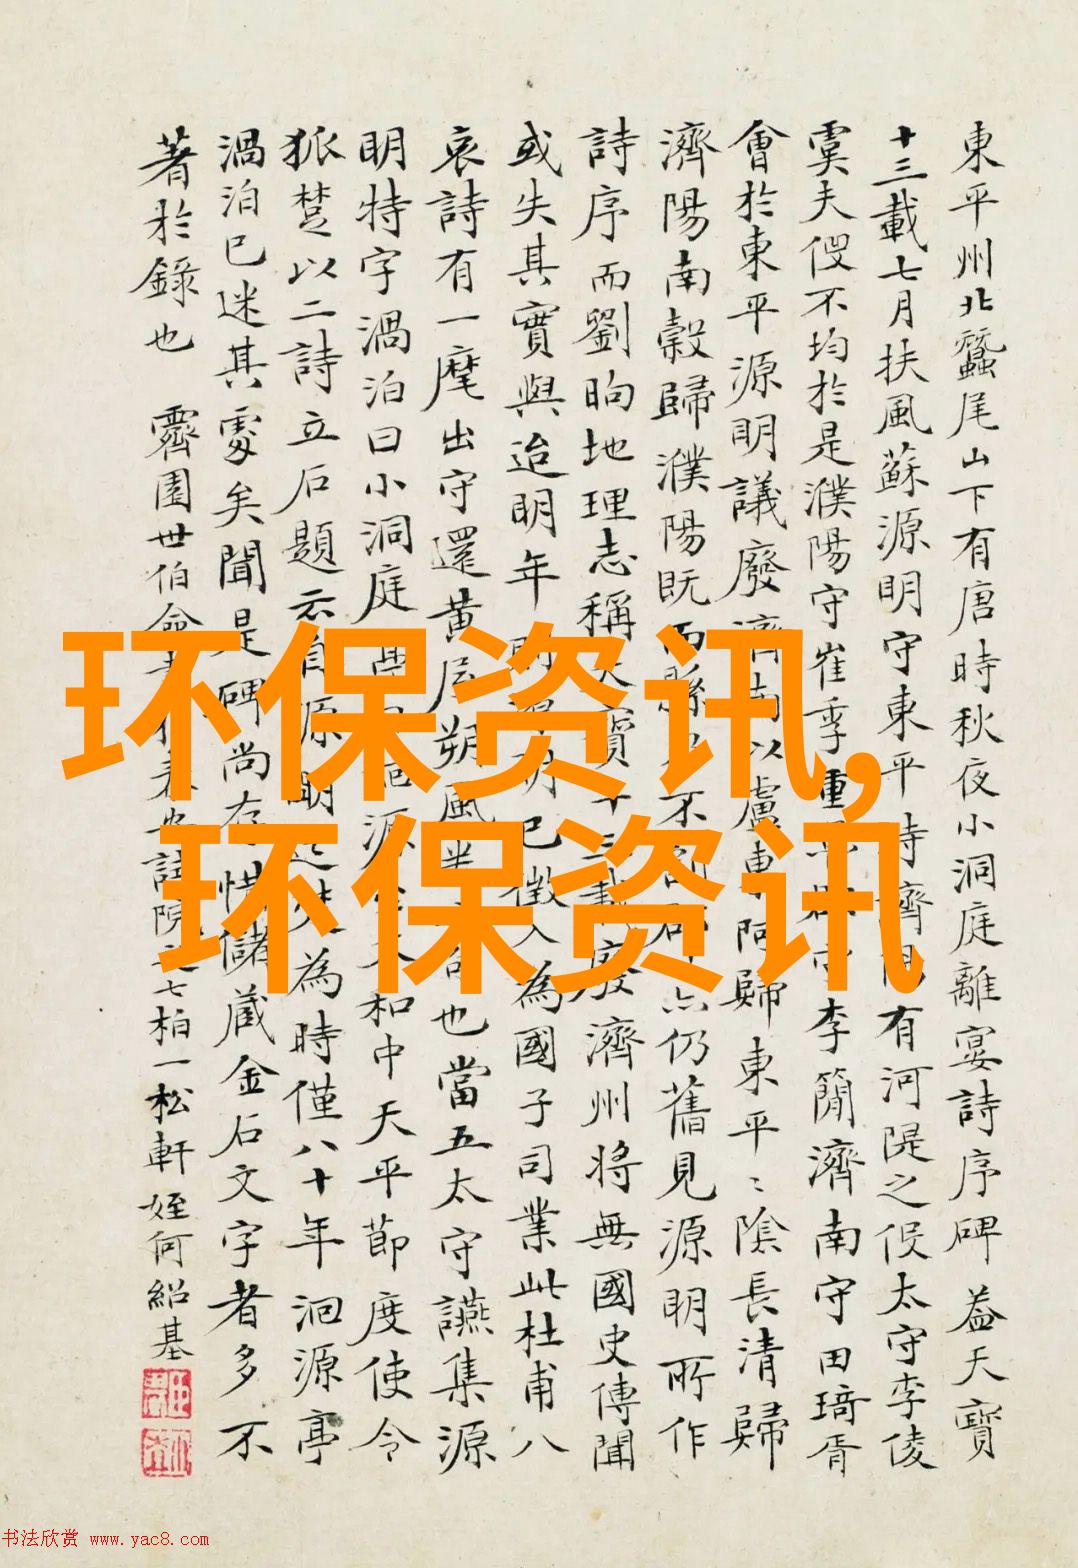 東平州北蠶尾山下有唐時秋夜小洞庭離宴詩序碑蓋天寶
十三載七月扶風蘇源明守東平時濟陽有河隄之役太守李倰
虞夫役不均於是濮陽守崔季重李簡濟南守田琦胥
會於東平源明議廢濟南以盧東阿歸東平〻陰長清歸
濟陽南穀歸濮陽既而縣不仍舊見源明所作
詩序而劉昫地理志稱天寶十三載廢濟州將無國史傳聞
或失其實與迨明年明已徵入為國子司業此杜甫八
哀詩有一麾出守還黄屋朔風也當五太守讌集源
明特字渦泊曰小洞庭源太和中天平節度使令
狐楚以二詩立石題云自源明為時僅八十年洄源亭
渦泊已迷其處矣聞是碑尚存惜儲蔵金石文字者多不
著於錄也 霽園世伯命七柏一松軒姪何紹基
环保资讯,
环保资讯
书法欣赏 www.yac8.com